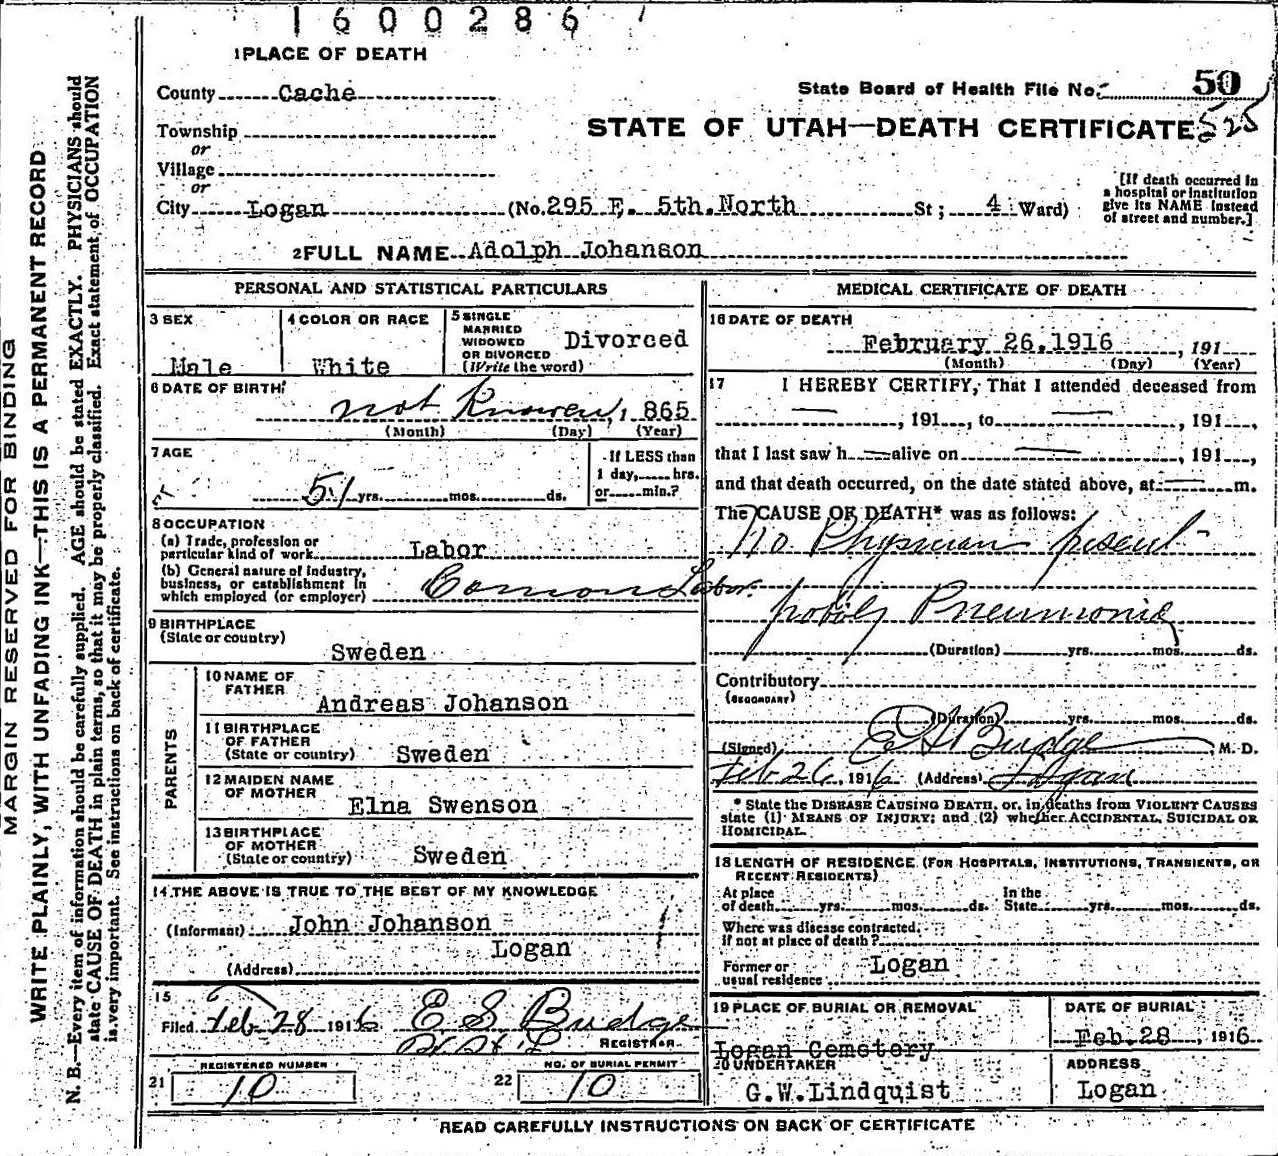 1600286
1 PLACE OF DEATH
County Cache
State Board of Health File No. 50
Township
or
STATE OF UTAH—DEATH CERTIFICATE 525
Village
or
City Logan (No. 295 E. 5th. North St; 4 Ward)
[If death occurred in
a hospital or institution
give its NAME instead
of street and number.]
2 FULL NAME Adolph Johanson
PERSONAL AND STATISTICAL PARTICULARS
3 SEX
Male
4 COLOR OR RACE
White
5 SINGLE
MARRIED
WIDOWED
OR DIVORCED
(Write the word)
Divorced
6 DATE OF BIRTH
not Knowen, 1865
(Month) (Day) (Year)
7 AGE
51 yrs. mos. ds.
If LESS than
1 day, hrs.
or min.?
8 OCCUPATION
(a) Trade, profession or
particular kind of work Labor
(b) General nature of industry,
business, or establishment in
which employed (or employer) Comon Labor.
9 BIRTHPLACE
(State or country)
Sweden
PARENTS
10 NAME OF
FATHER
Andreas Johanson
11 BIRTHPLACE
OF FATHER
(State or country) Sweden
12 MAIDEN NAME
OF MOTHER
Elna Swenson
13 BIRTHPLACE
OF MOTHER
(State or country) Sweden
14 THE ABOVE IS TRUE TO THE BEST OF MY KNOWLEDGE
(Informant) John Johanson
Logan
(Address)
15
Filed Feb 28 1916 E S Budge
REGISTRAR
REGISTERED NUMBER
21 10
NO. OF BURIAL PERMIT
22 10
MEDICAL CERTIFICATE OF DEATH
16 DATE OF DEATH
February 26, 1916, 191
(Month) (Day) (Year)
17 I HEREBY CERTIFY, That I attended deceased from
—, 191 , to —, 191 ,
that I last saw h— alive on —, 191 ,
and that death occurred, on the date stated above, at — m.
The CAUSE OF DEATH* was as follows:
No Physician present
pobily Pneumonia
(Duration) yrs. mos. ds.
Contributory
(SECONDARY)
(Duration) yrs. mos. ds.
(Signed) E S Budge M. D.
Feb 26, 1916 (Address) Logan
* State the DISEASE CAUSING DEATH, or, in deaths from VIOLENT CAUSES
state (1) MEANS OF INJURY; and (2) whether ACCIDENTAL, SUICIDAL OR
HOMICIDAL.
18 LENGTH OF RESIDENCE (FOR HOSPITALS, INSTITUTIONS, TRANSIENTS, OR
RECENT RESIDENTS)
At place In the
of death yrs. mos. ds. State yrs. mos. ds.
Where was disease contracted,
if not at place of death?
Former or
usual residence Logan
19 PLACE OF BURIAL OR REMOVAL
Logan Cemetery
DATE OF BURIAL
Feb. 28, 1916
20 UNDERTAKER
G.W. Lindquist
ADDRESS
Logan
READ CAREFULLY INSTRUCTIONS ON BACK OF CERTIFICATE
MARGIN RESERVED FOR BINDING
WRITE PLAINLY, WITH UNFADING INK—THIS IS A PERMANENT RECORD
N. B.—Every item of information should be carefully supplied. AGE should be stated EXACTLY. PHYSICIANS should
state CAUSE OF DEATH in plain terms, so that it may be properly classified. Exact statement of OCCUPATION
is very important. See instructions on back of certificate.